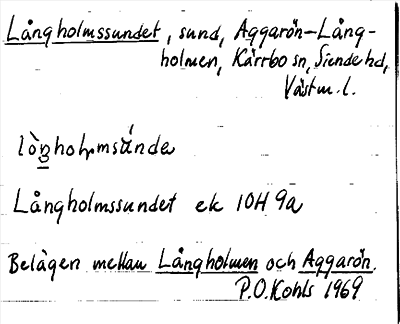 Långholmssundet, sund, Aggarön-Lång-
holmen, Kärrbo sn, Siende hd,
Västm. l.
Långholmssundet ek 10H 9a
Belägen mellan Långholmen och Aggarön.
P.O. Kohls 1969